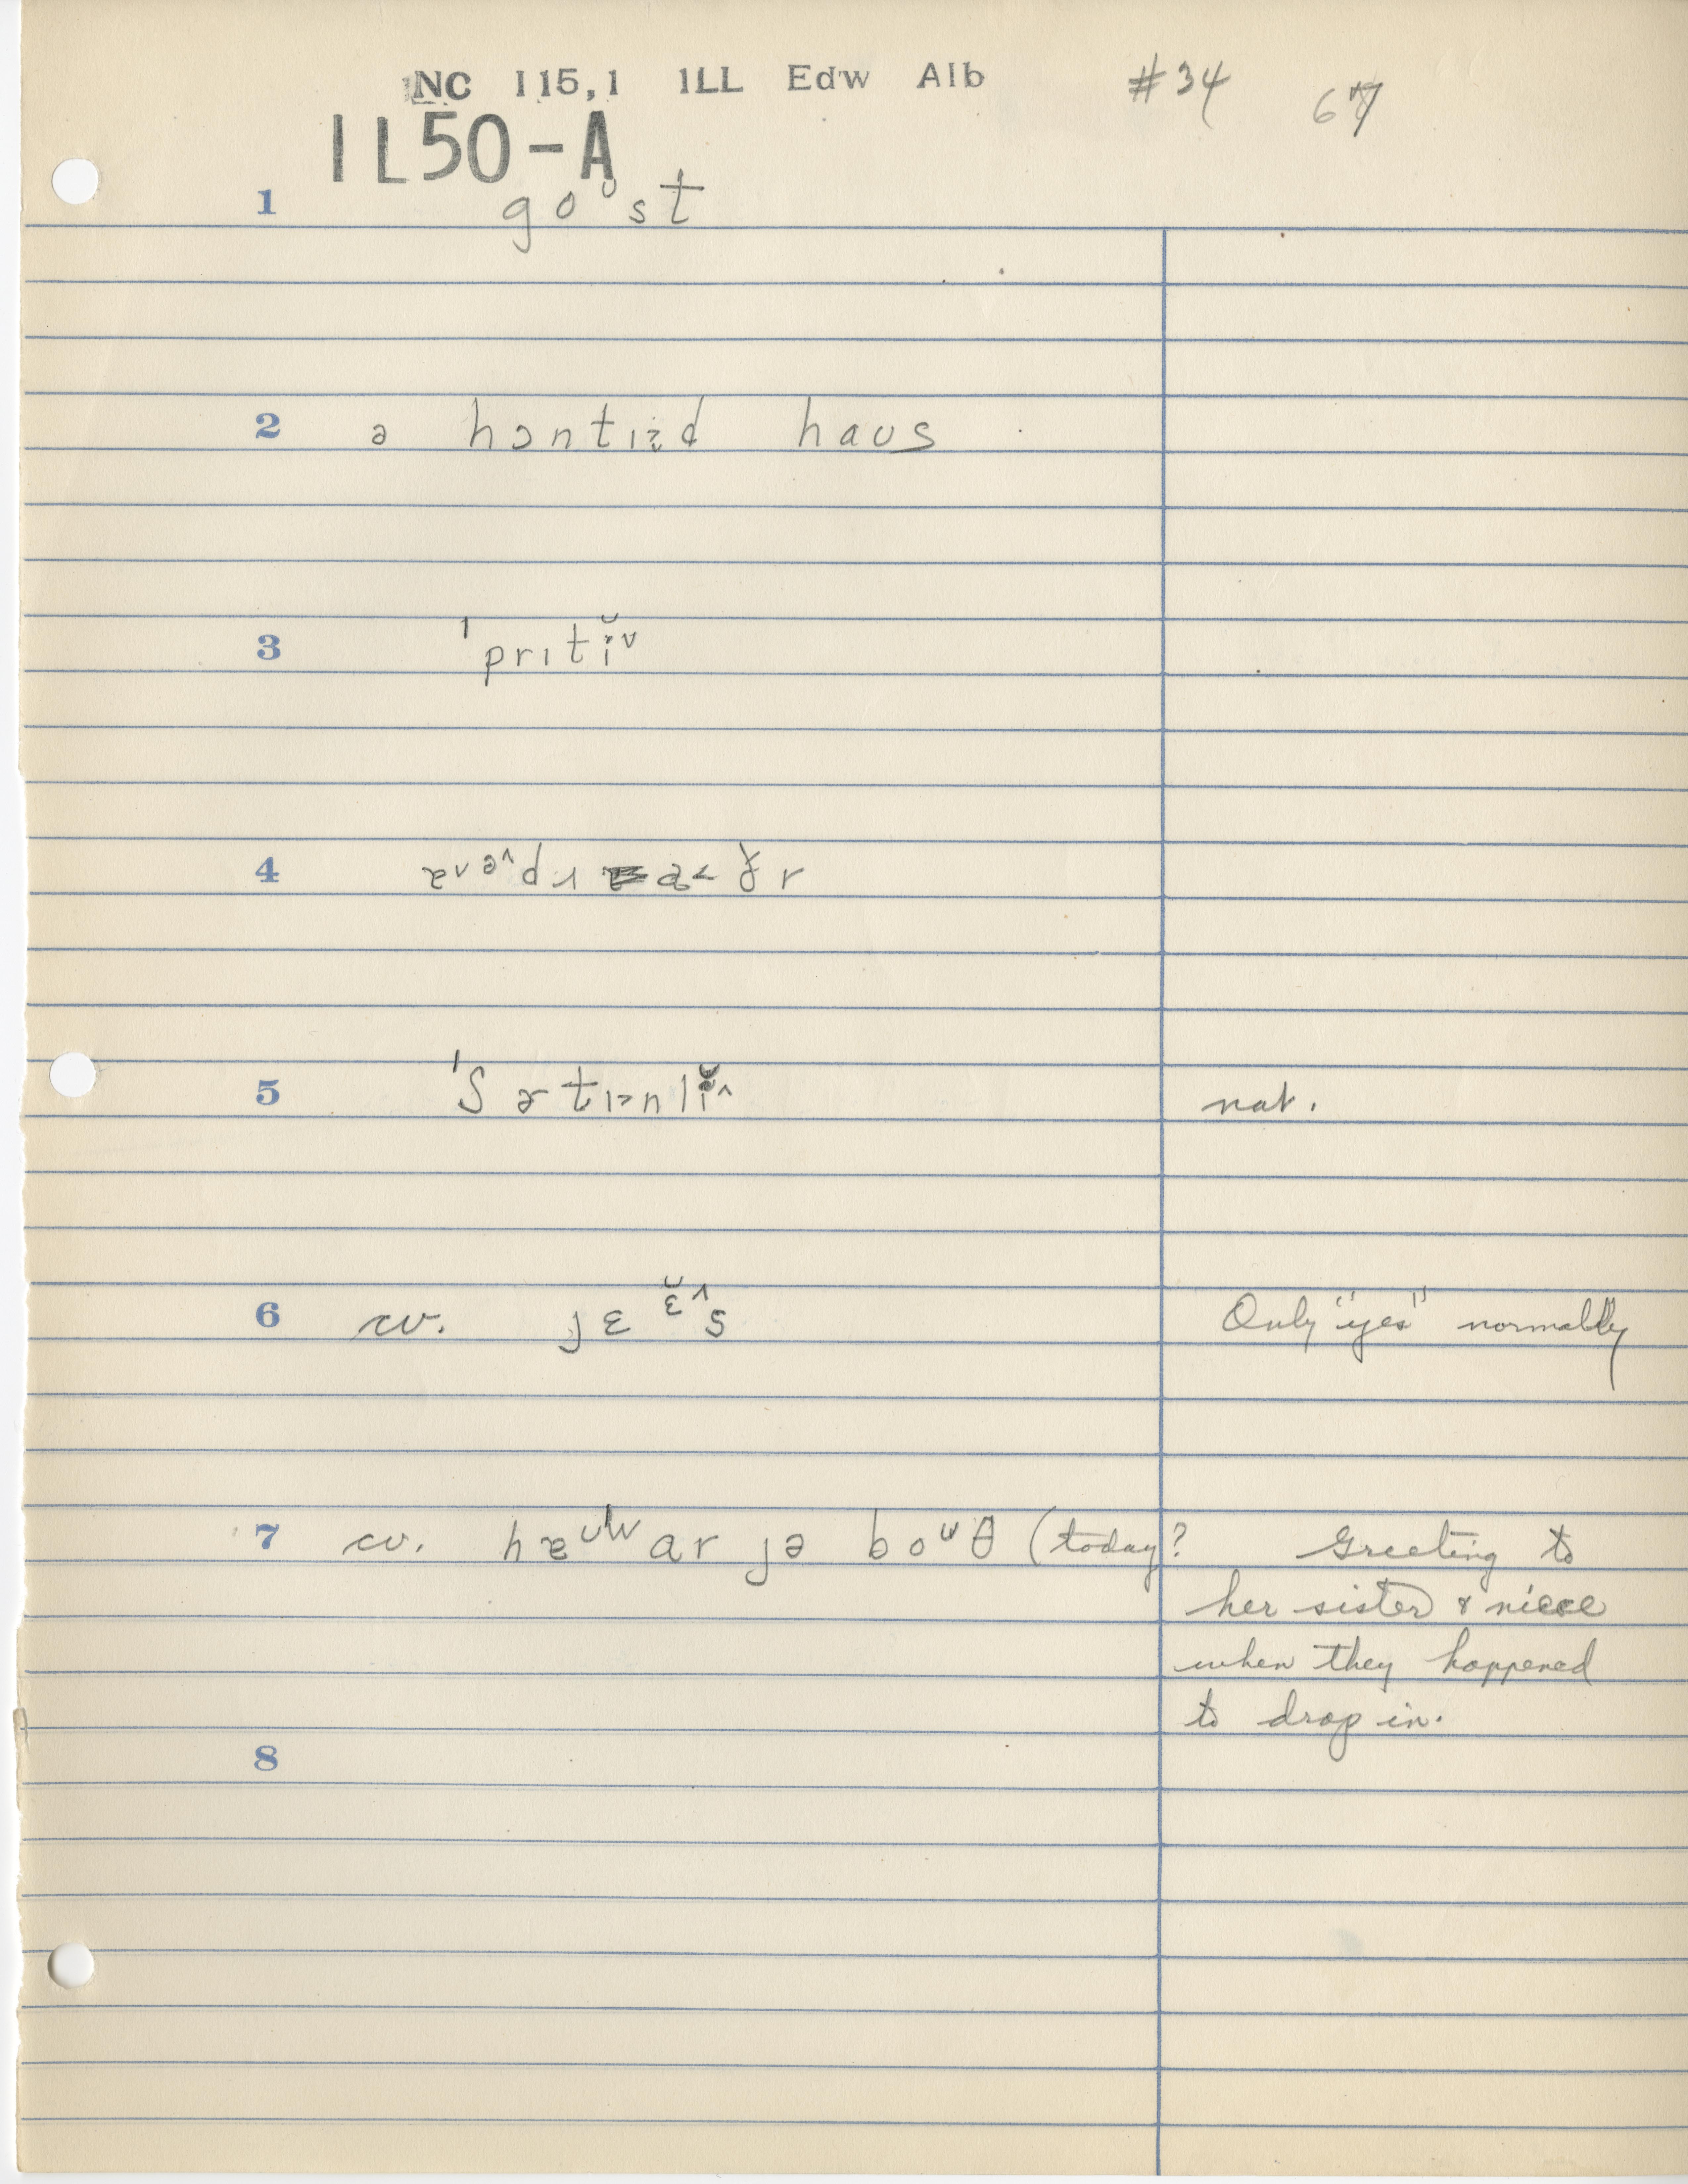 NC 115,1 ILL Edw Alb #34 67
IL50-A
1 goᶷst
2 ə hɔntɪᵻd haʊs
3 ˈprɪtĭ˅
4
5 ˈsɚtɪənlĭ˄ nat.
6 cv. jɛɛ̆˄s Only "yes" normally
7 cv. hæᴜw ar jə boᴜθ (today? Greeting to
her sister & niece
when they happened
to drop in.
8